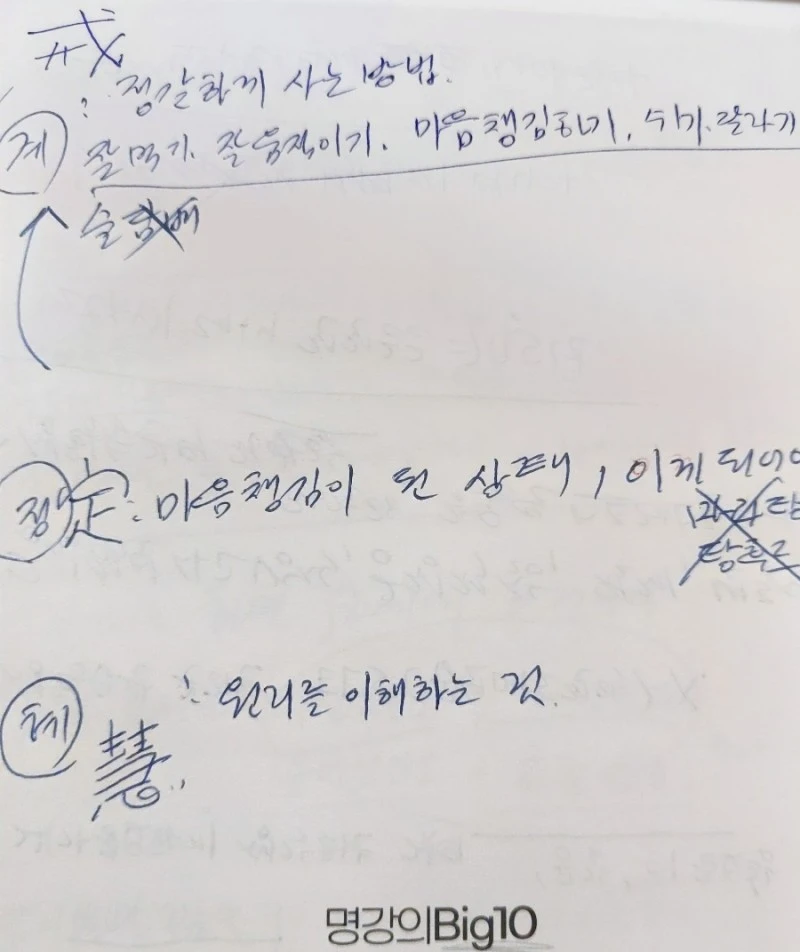 戒
: 정갈하게 사는 방법.
계 잘먹기. 잘움직이기. 마음챙김하기, 쉬기.
술 담배
정 定: 마음챙김이 된 상태, 이게 되어야
탕후루
혜 慧 : 원리를 이해하는 것.
명강의Big10